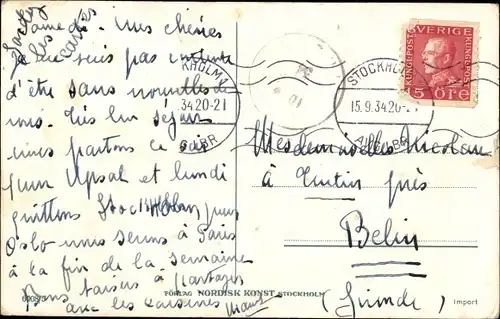 Gardez
les
cartes
Samedi. Mes chéries
je ne suis pas contente
d'être sans nouvelles de
vous. Très bon séjour
nous partons ce soir
pour Upsal et lundi
quittons Stockholm pour
Oslo nous serons à Paris
à la fin de la semaine
Bons baisers à partager
avec les cousines
KHOLM 1
34.20-21
AVBR
STOCKHOLM
15.9.34.20-
SVERIGE
KUNGSPOST
KUNGSPOST
15 ÖRE
Mesdemoiselles Nicolau
à près
Belin
(Gironde)
6008/5
FÖRLAG NORDISK KONST STOCKHOLM
Import